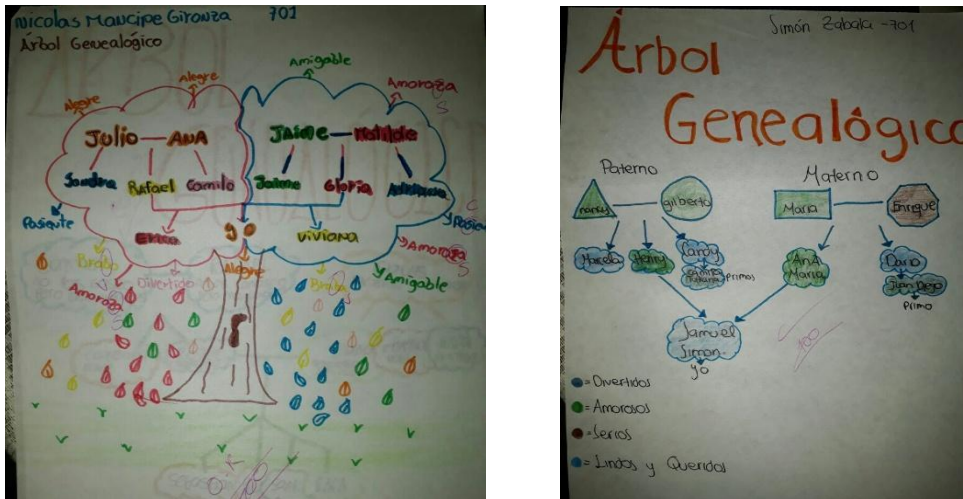 Nicolas Mancipe Gironza 701
Árbol Genealógico
Amigable
Alegre
Alegre
Amoroza
S
Julio — ANA
Jaime — Matilde
Sandra Rafael Camilo
Jaime Gloria Adriana
Pasiente
Erica
yo
Viviana
Brabo
Divertido
Alegre
Amoroza
S
Amoroza
S
Amigable
Simón Zabala - 701
Árbol
Genealógico
Paterno
Materno
nancy
gilberto
Maria
Enrique
Marcela
Henry
Candy
primos
AnA
Maria
Dario
Juan Diego
primo
Samuel
Simon
yo
100
= Divertidos
= Amorosos
= Serios
= Lindos y Queridos